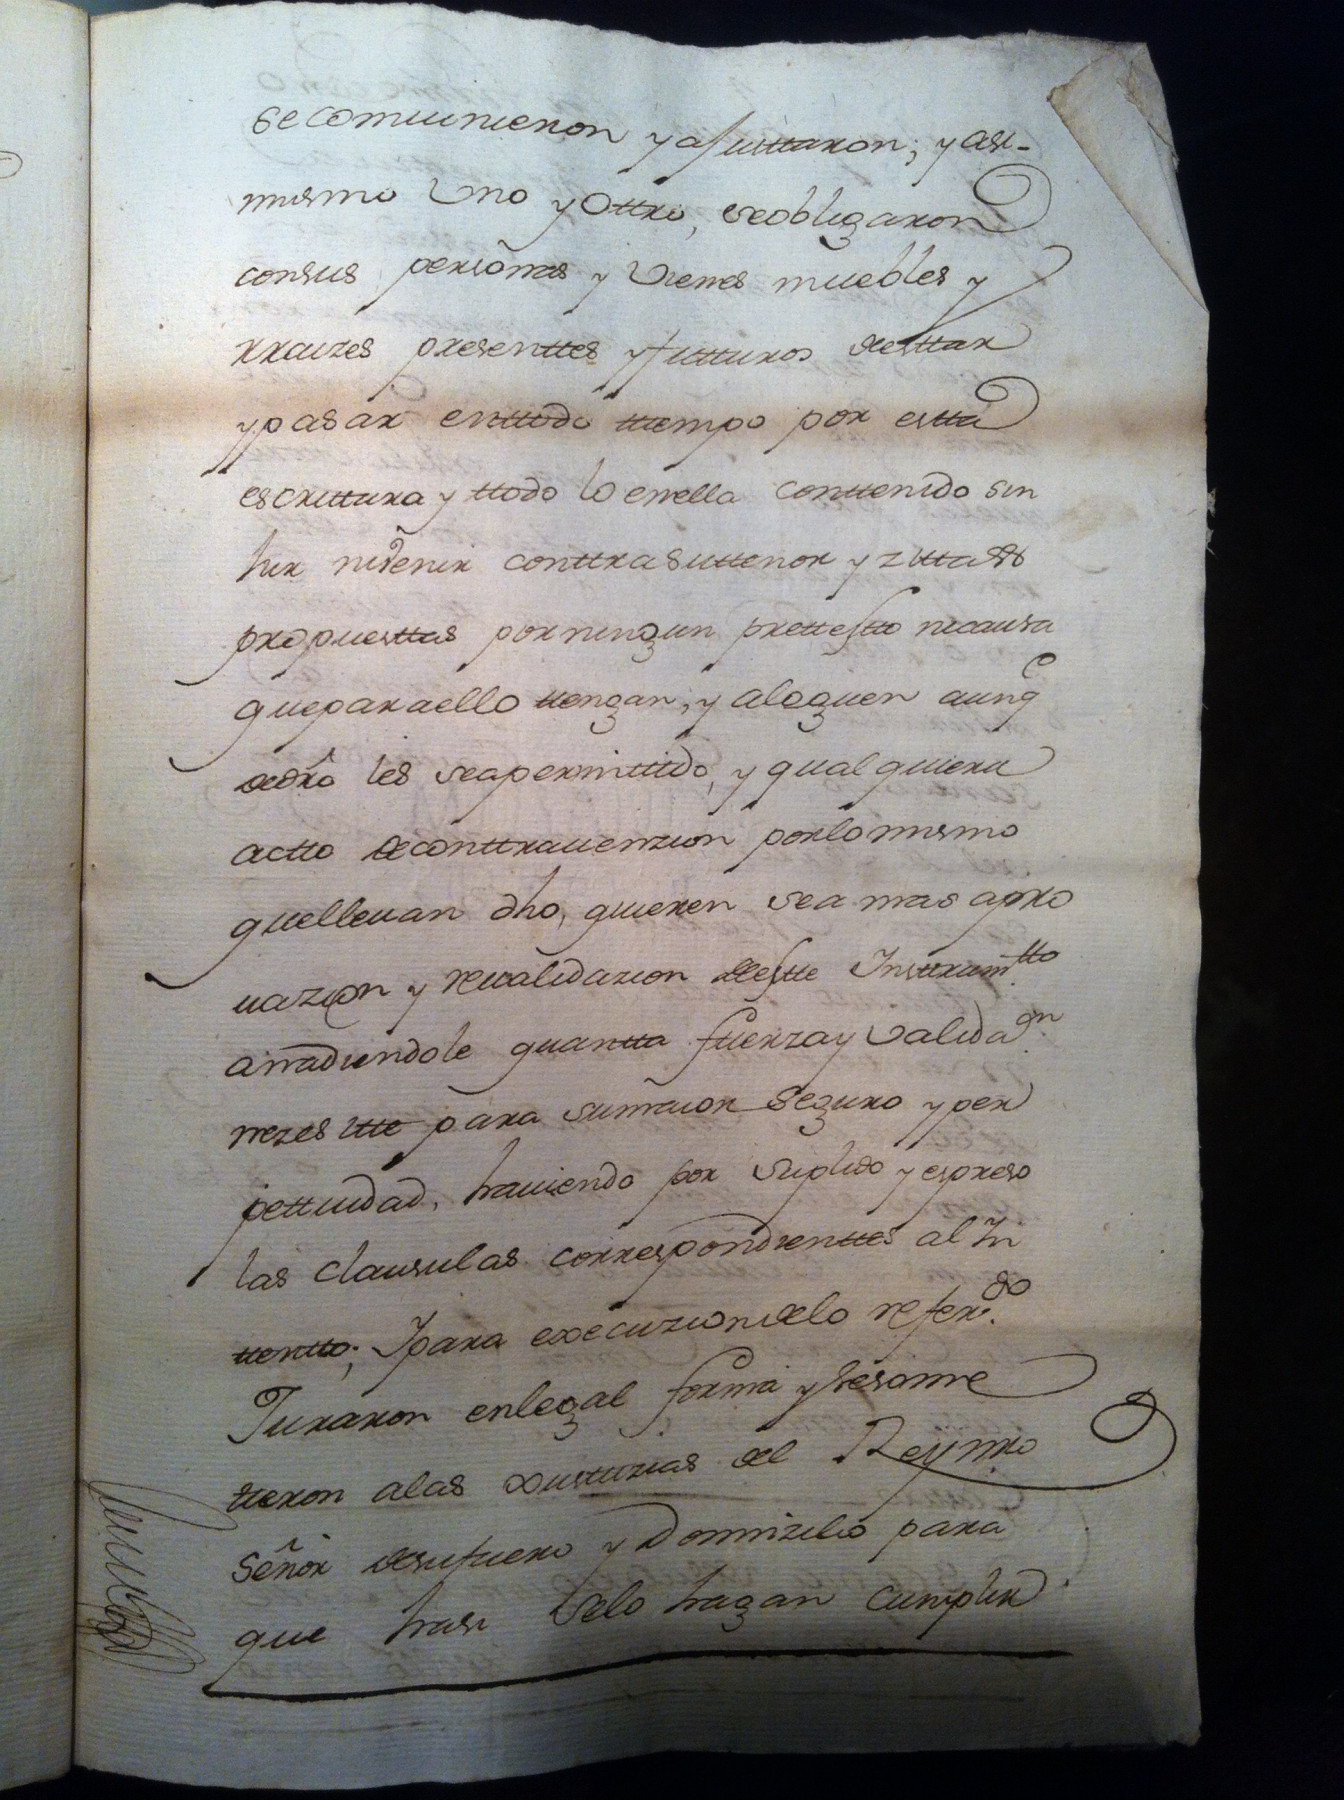 se combinieron y ajusttaron; y asi-
mismo Uno y Ottro, se obligaron
con sus persõnas y Vienes muebles y
rraizes presenttes y futturos de esttar
y pasar en ttodo ttiempo por estta
escrittura y ttodo lo en ella conttenido sin
hir ni Venir conttra su ttenor y zittadas
propuesttas por ningun prettestto ni causa
que para ello ttengan, y aleguen aunq͂e
de dr̃o les sea permittido, y qual quiera
actto de conttrauenzion por lo mismo
que lleuan dho, quieren sea mas apro
uazion y reualidazion de estte Instrum.tto
anadiendole quantta fuerza y Valida.on
nezesitte para su maior Seguro y per
pettuidad, hauiendo por Suplido y espreso
las clausulas correspondienttes al In
ttentto; Y para execuzion de lo refer.do
Juraron en legal forma y se some
ttieron a las Justtizias del Rey nr̃o
Señor de su fuero y Domizilio para
que hasi se lo hagan cumplir